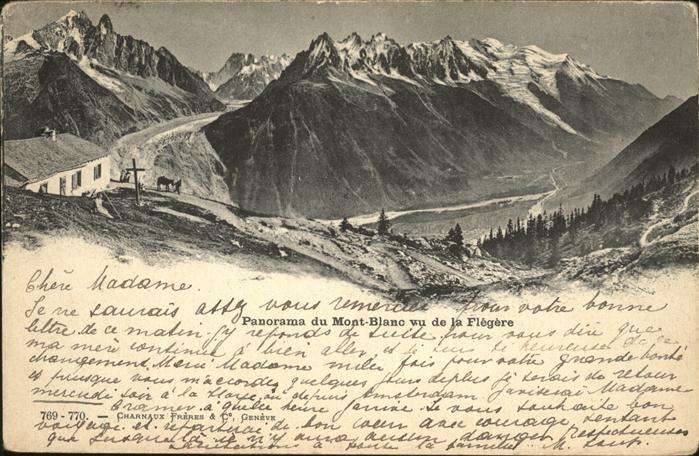 Chère Madame.
Je ne saurais assez vous remercier pour votre bonne
Panorama du Mont-Blanc vu de la Flégère
lettre de ce matin. J'y réponds de suite pour vous dire que
ma mère continue à bien aller et je suis si heureuse de ce
changement. Merci Madame mille fois pour votre grande bonté
et puisque vous m'accordez quelques jours de plus je serais de retour
mercredi soir à la depuis Amsterdam Madame
Cramer à quelle heure j'arrive. Je vous souhaite bon
769-770. — CHARNAUX FRÈRES & Cº, GENÈVE
voyage et de bon coeur avec courage, sentant
que il n'y aura aucun danger. Respectueuses
salutations à toute la famille. M.